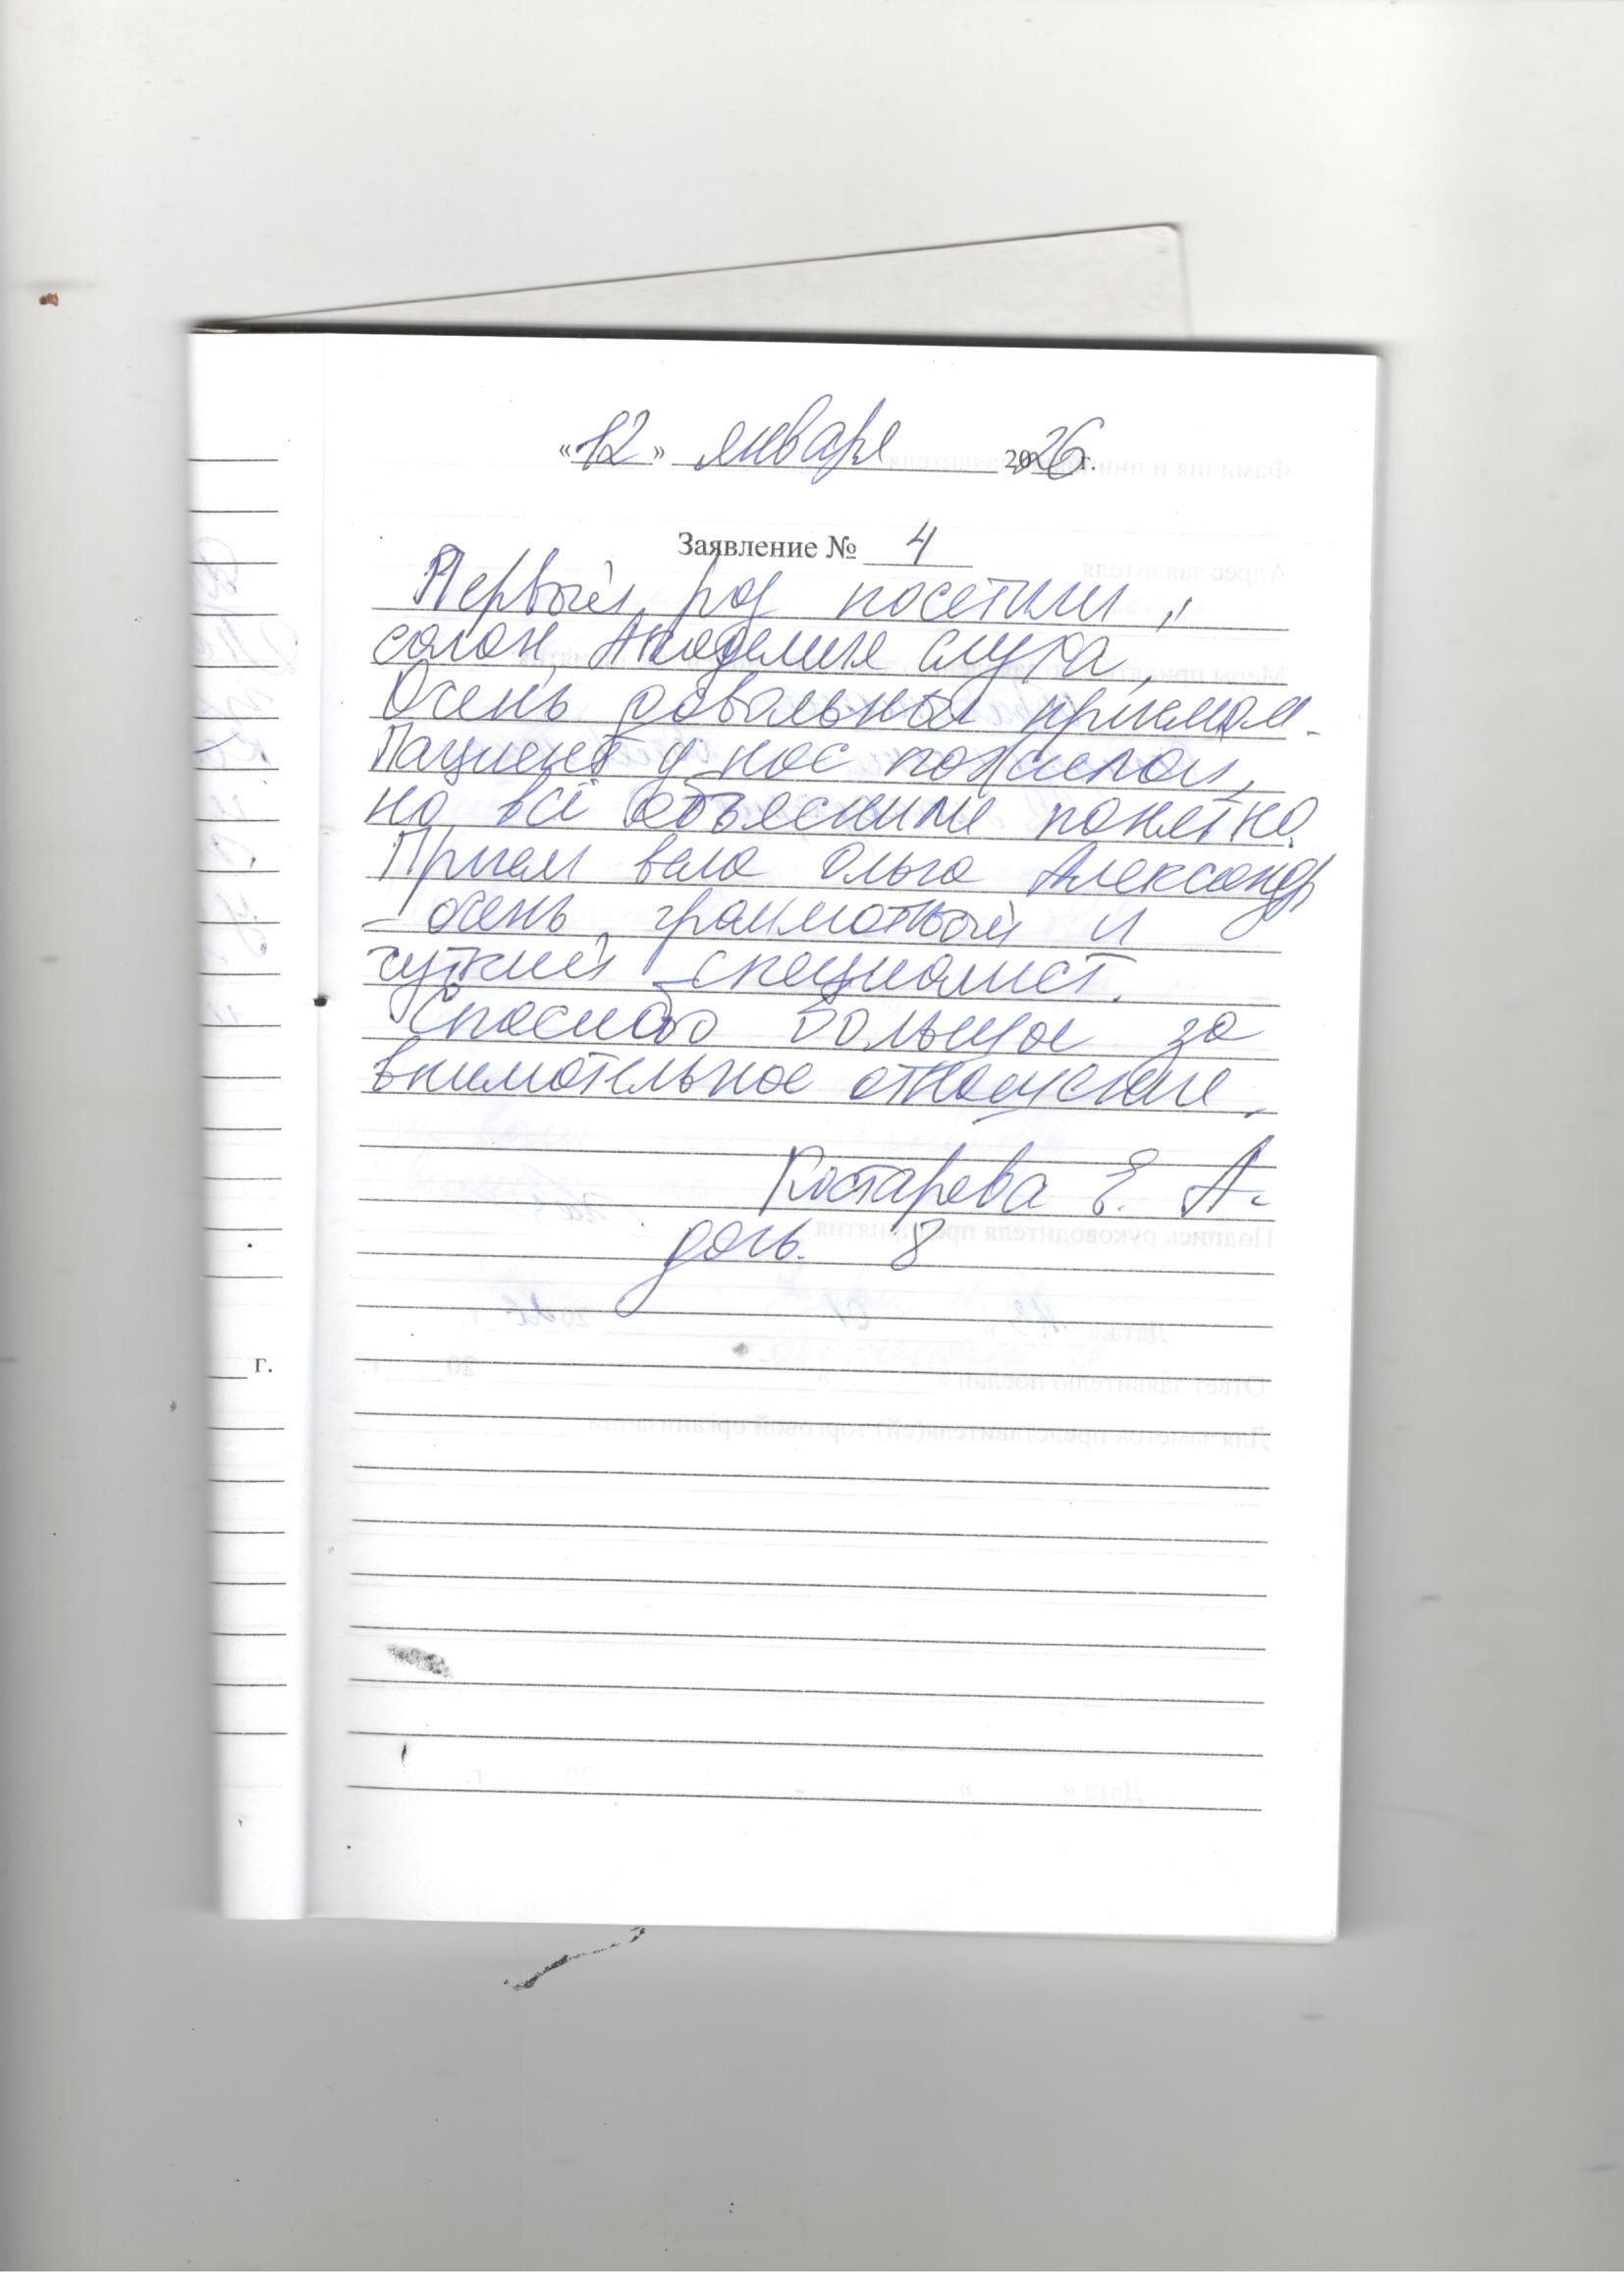 «12» января 2026 г.
Заявление № 4
Первый раз посетили
салон Академия слуха.
Очень довольны приемом.
Пациент у нас пожилой,
но всё объяснили понятно.
Прием вела Ольга Александр
- очень грамотный и
чуткий специалист.
Спасибо большое за
внимательное отношение.
Костарева Е. А.
дочь.
г.